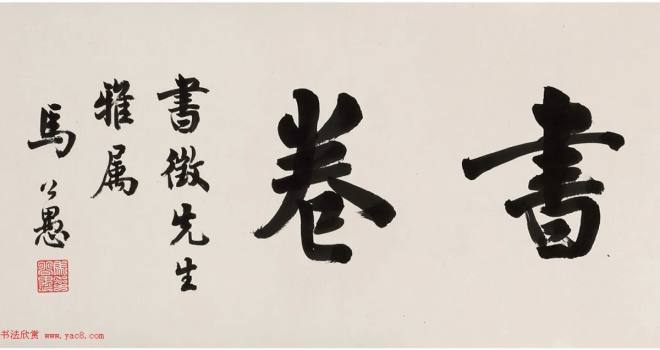 書卷
書徵先生
雅属
馬公愚
书法欣赏 www.yac8.com